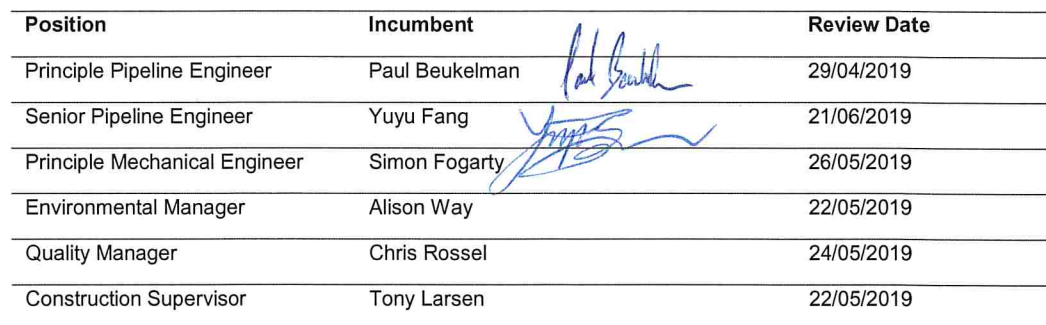 Position Incumbent Review Date
Principle Pipeline Engineer Paul Beukelman 29/04/2019
Senior Pipeline Engineer Yuyu Fang 21/06/2019
Principle Mechanical Engineer Simon Fogarty 26/05/2019
Environmental Manager Alison Way 22/05/2019
Quality Manager Chris Rossel 24/05/2019
Construction Supervisor Tony Larsen 22/05/2019